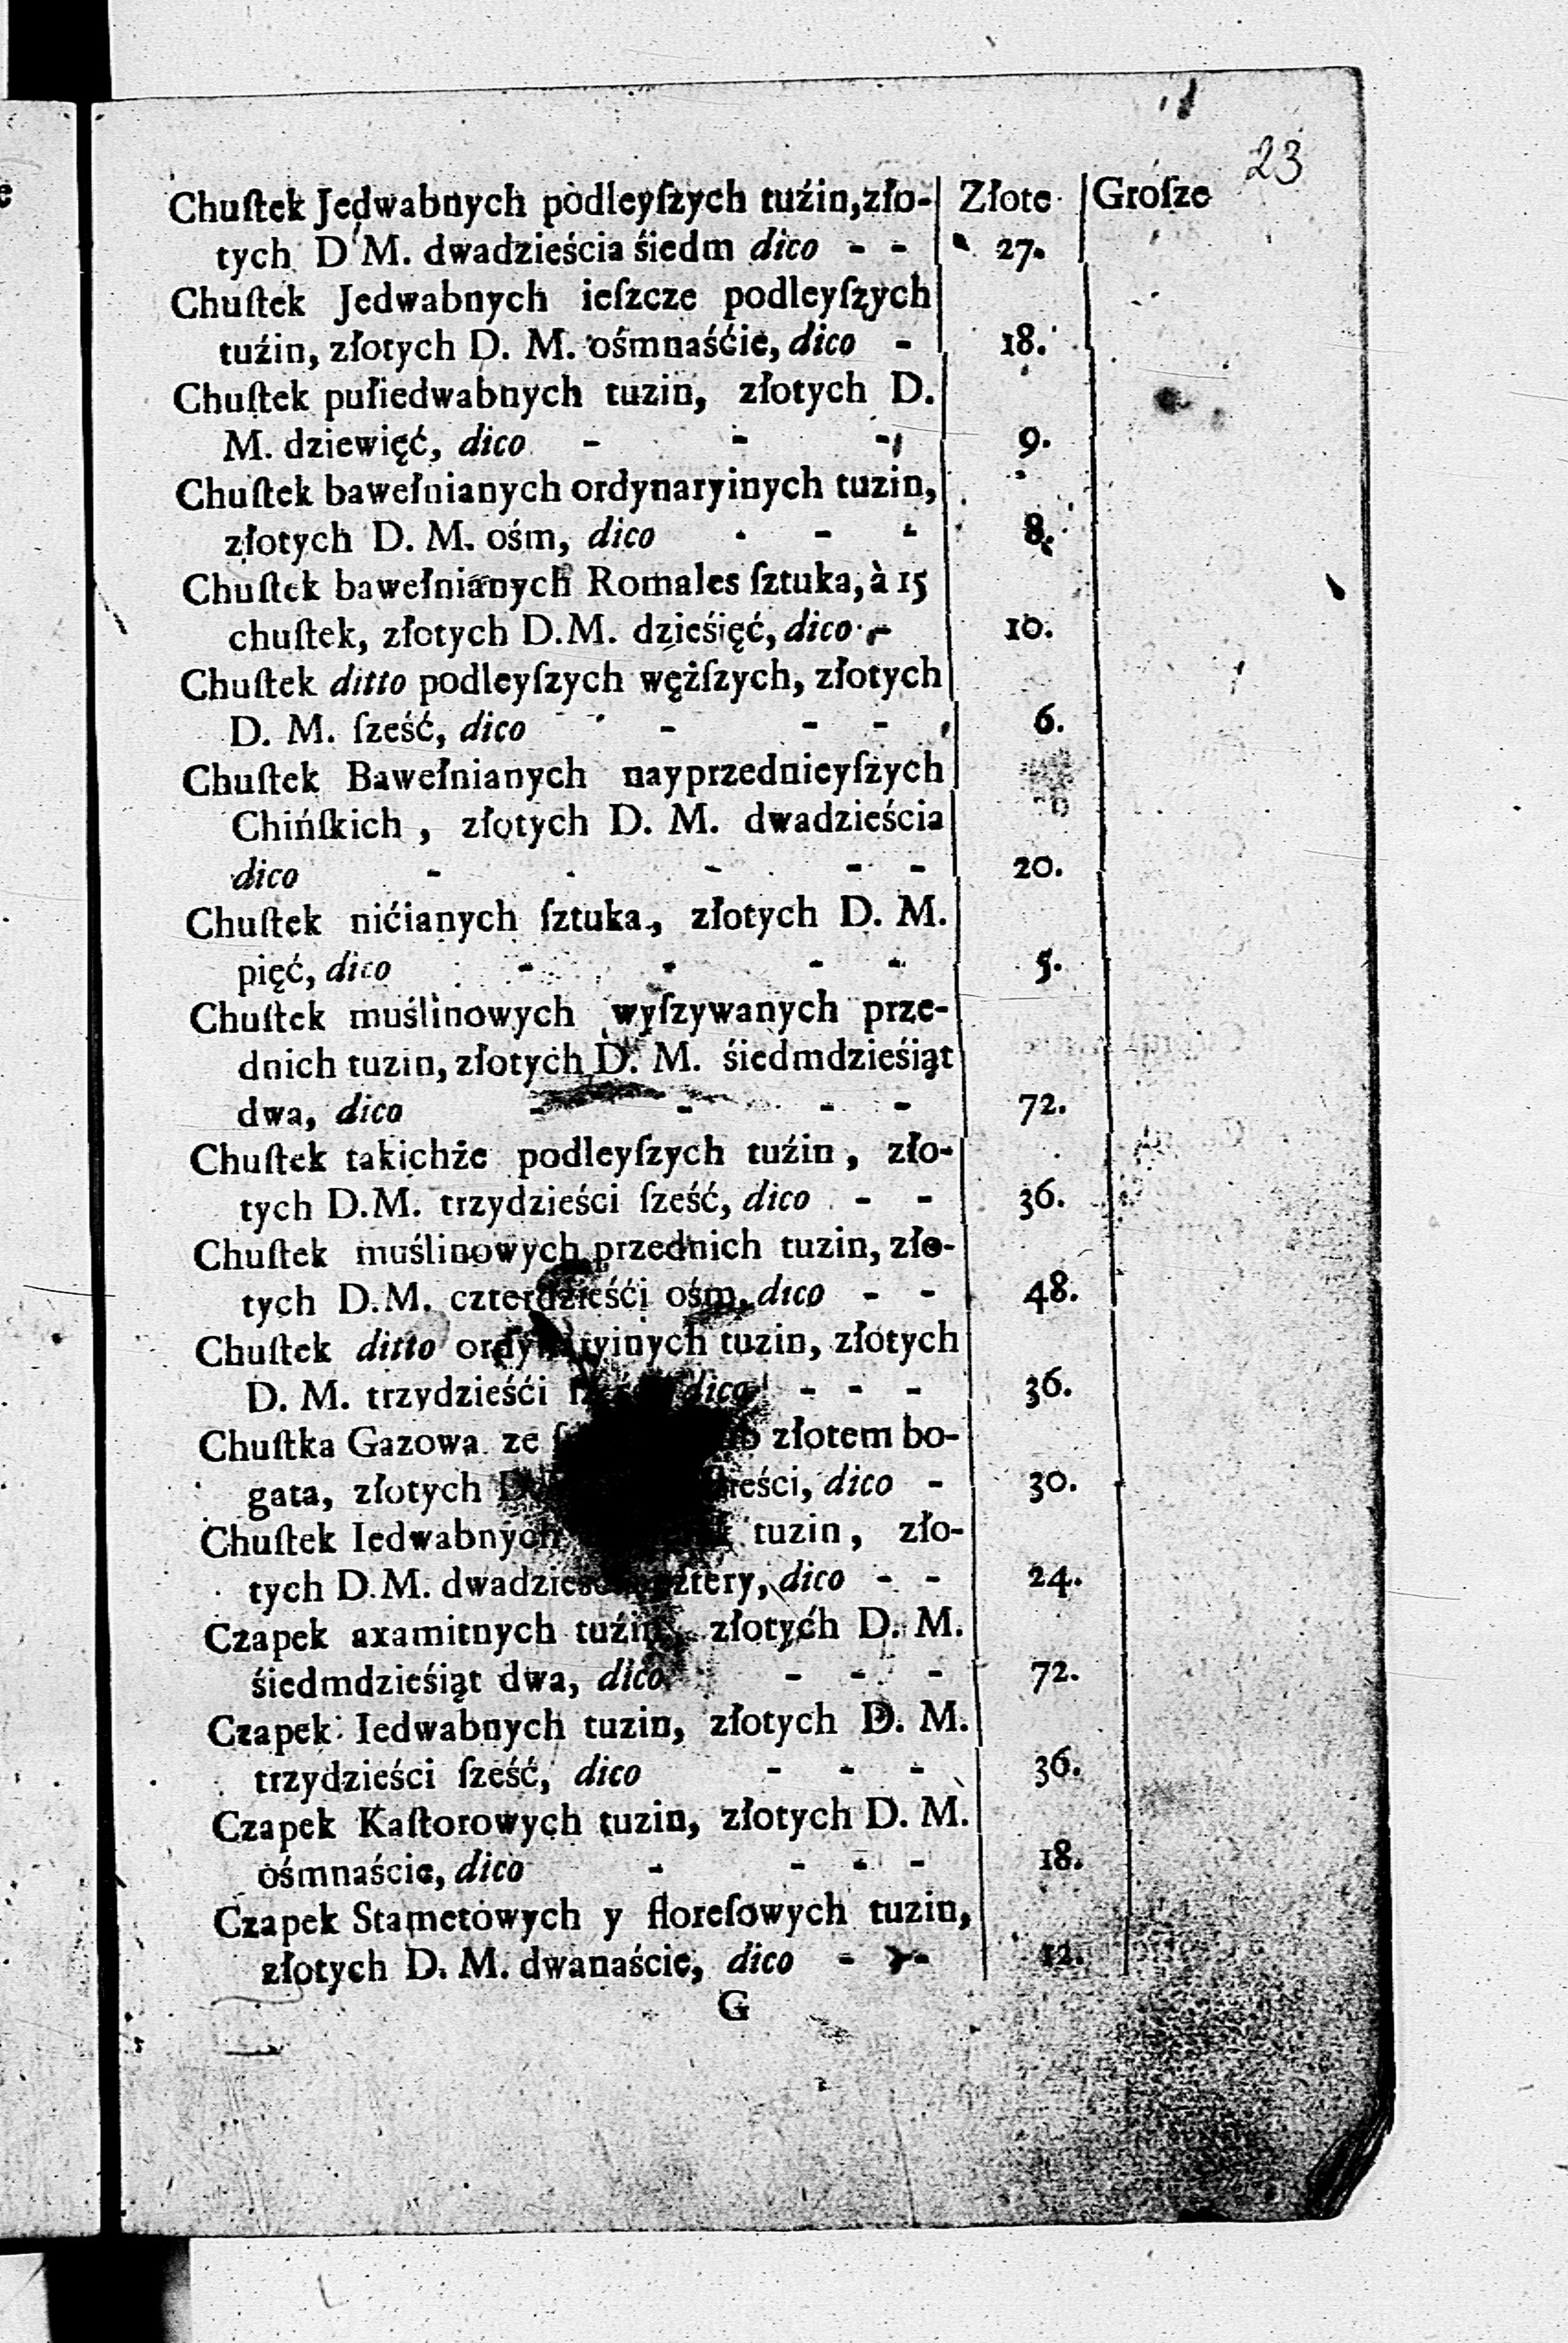 23
Chuſtek Jedwabnych podleyſzych tuźin, zło- | Złote | Groſze
tych D M. dwadzieścia śiedm dico - - 27.
Chuſtek Jedwabnych ieſzcze podleyſzych
tuźin, złotych D. M. ośmnaśćie, dico - 18.
Chuſtek pułiedwabnych tuzin, złotych D.
M. dziewięć, dico - - - 9.
Chuſtek bawełnianych ordynaryinych tuzin,
złotych D. M. ośm, dico - - - 8.
Chuſtek bawełnianych Romales ſztuka, à 15
chuſtek, złotych D.M. dzieśięć, dico - 10.
Chuſtek ditto podleyſzych wężſzych, złotych
D. M. ſześć, dico - - - 6.
Chuſtek Bawełnianych nayprzednieyſzych
Chińſkich , złotych D. M. dwadzieścia
dico - - - - 20.
Chuſtek nićianych ſztuka, złotych D. M.
pięć, dico - - - - 5.
Chuſtek muślinowych wyſzywanych prze-
dnich tuzin, złotych D. M. śiedmdzieśiąt
dwa, dico - - - - 72.
Chuſtek takichże podleyſzych tuźin , zło-
tych D.M. trzydzieści ſześć, dico - - 36.
Chuſtek muślinowych przednich tuzin, zło-
tych D.M. czterdzieśći ośm, dico - - 48.
Chuſtek ditto ordynaryinych tuzin, złotych
D. M. trzydzieśći dico - - - 36.
Chuſtka Gazowa ze złotem bo-
gata, złotych dico - 30.
Chuſtek Iedwabnych tuzin , zło-
tych D.M. dwadzieścia cztery, dico - - 24.
Czapek axamitnych tuźin, złotych D. M.
śiedmdzieśiąt dwa, dico - - - 72.
Czapek Iedwabnych tuzin, złotych D. M.
trzydzieści ſześć, dico - - - 36.
Czapek Kaſtorowych tuzin, złotych D. M.
ośmnaście, dico - - - - 18.
Czapek Stametowych y floreſowych tuzin,
złotych D. M. dwanaście, dico - - 12.
G